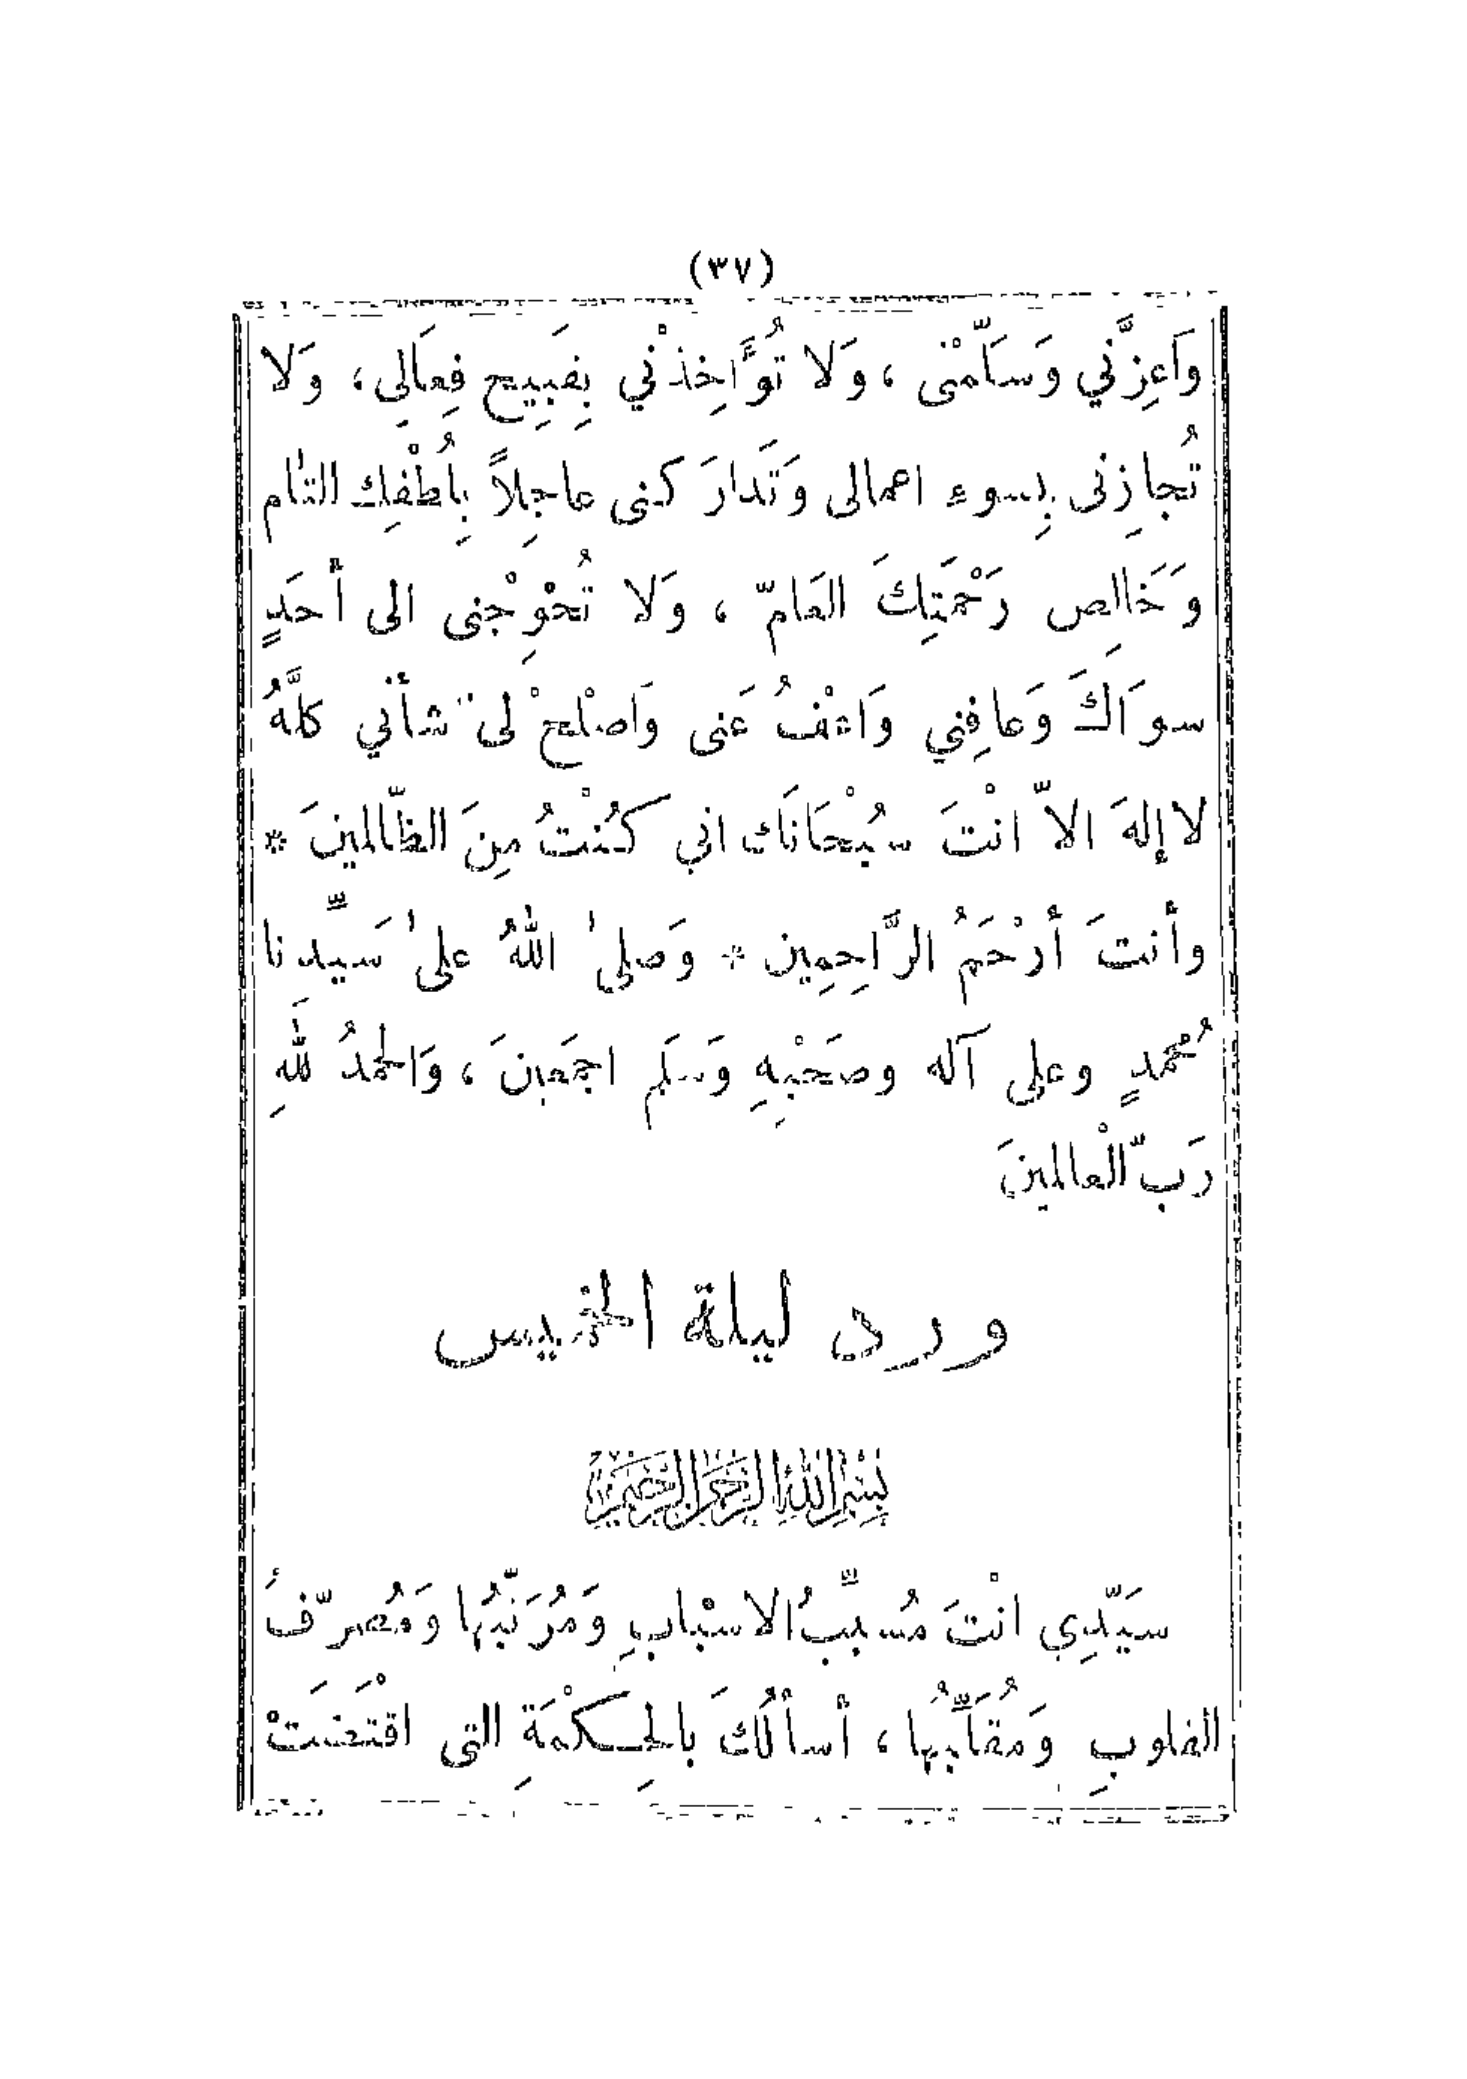 (٣٧)
وَاَعِزَّني وَسَلِّمْنى ، وَلا تُؤَاخِذْني بِقَبِيحِ فِعَالِي ، وَلا
تُجازِنى بِسوءِ اعمالى وَتَدارَكنى عاجِلاً بِلُطْفِك التام
وَخَالِص رَحْمَتِكَ العَامّ ، وَلا تُحْوِجْنى الى أحَدٍ
سوَاكَ وَعافِني وَاعْفُ عَنى وَاصْلِحْ لى شأني كلَّهُ
لا إلهَ الاّ انْتَ سُبْحَانَك اني كُنْتُ مِنَ الظّالمينَ *
وأنتَ أرْحَمُ الرَّاحِمِين * وَصلى اللهُ على سَيِّدنا
مُحمدٍ وعلى آله وصَحْبِهِ وَسَلم اجمَعينَ ، وَالحمدُ للهِ
رَبّ الْعالمينَ
ورد ليلة الخميس
بِسْمِ اللهِ الرَّحْمٰنِ الرَّحِيمِ
سيَدِي انْتَ مُسبِّبُ الاسْبابِ وَمُرَتِّبُها وَمُصرّفُ
القلوبِ وَمُقَلِّبُها ، أسألُكَ بالحِكْمَةِ التى اقْتَضَتْ